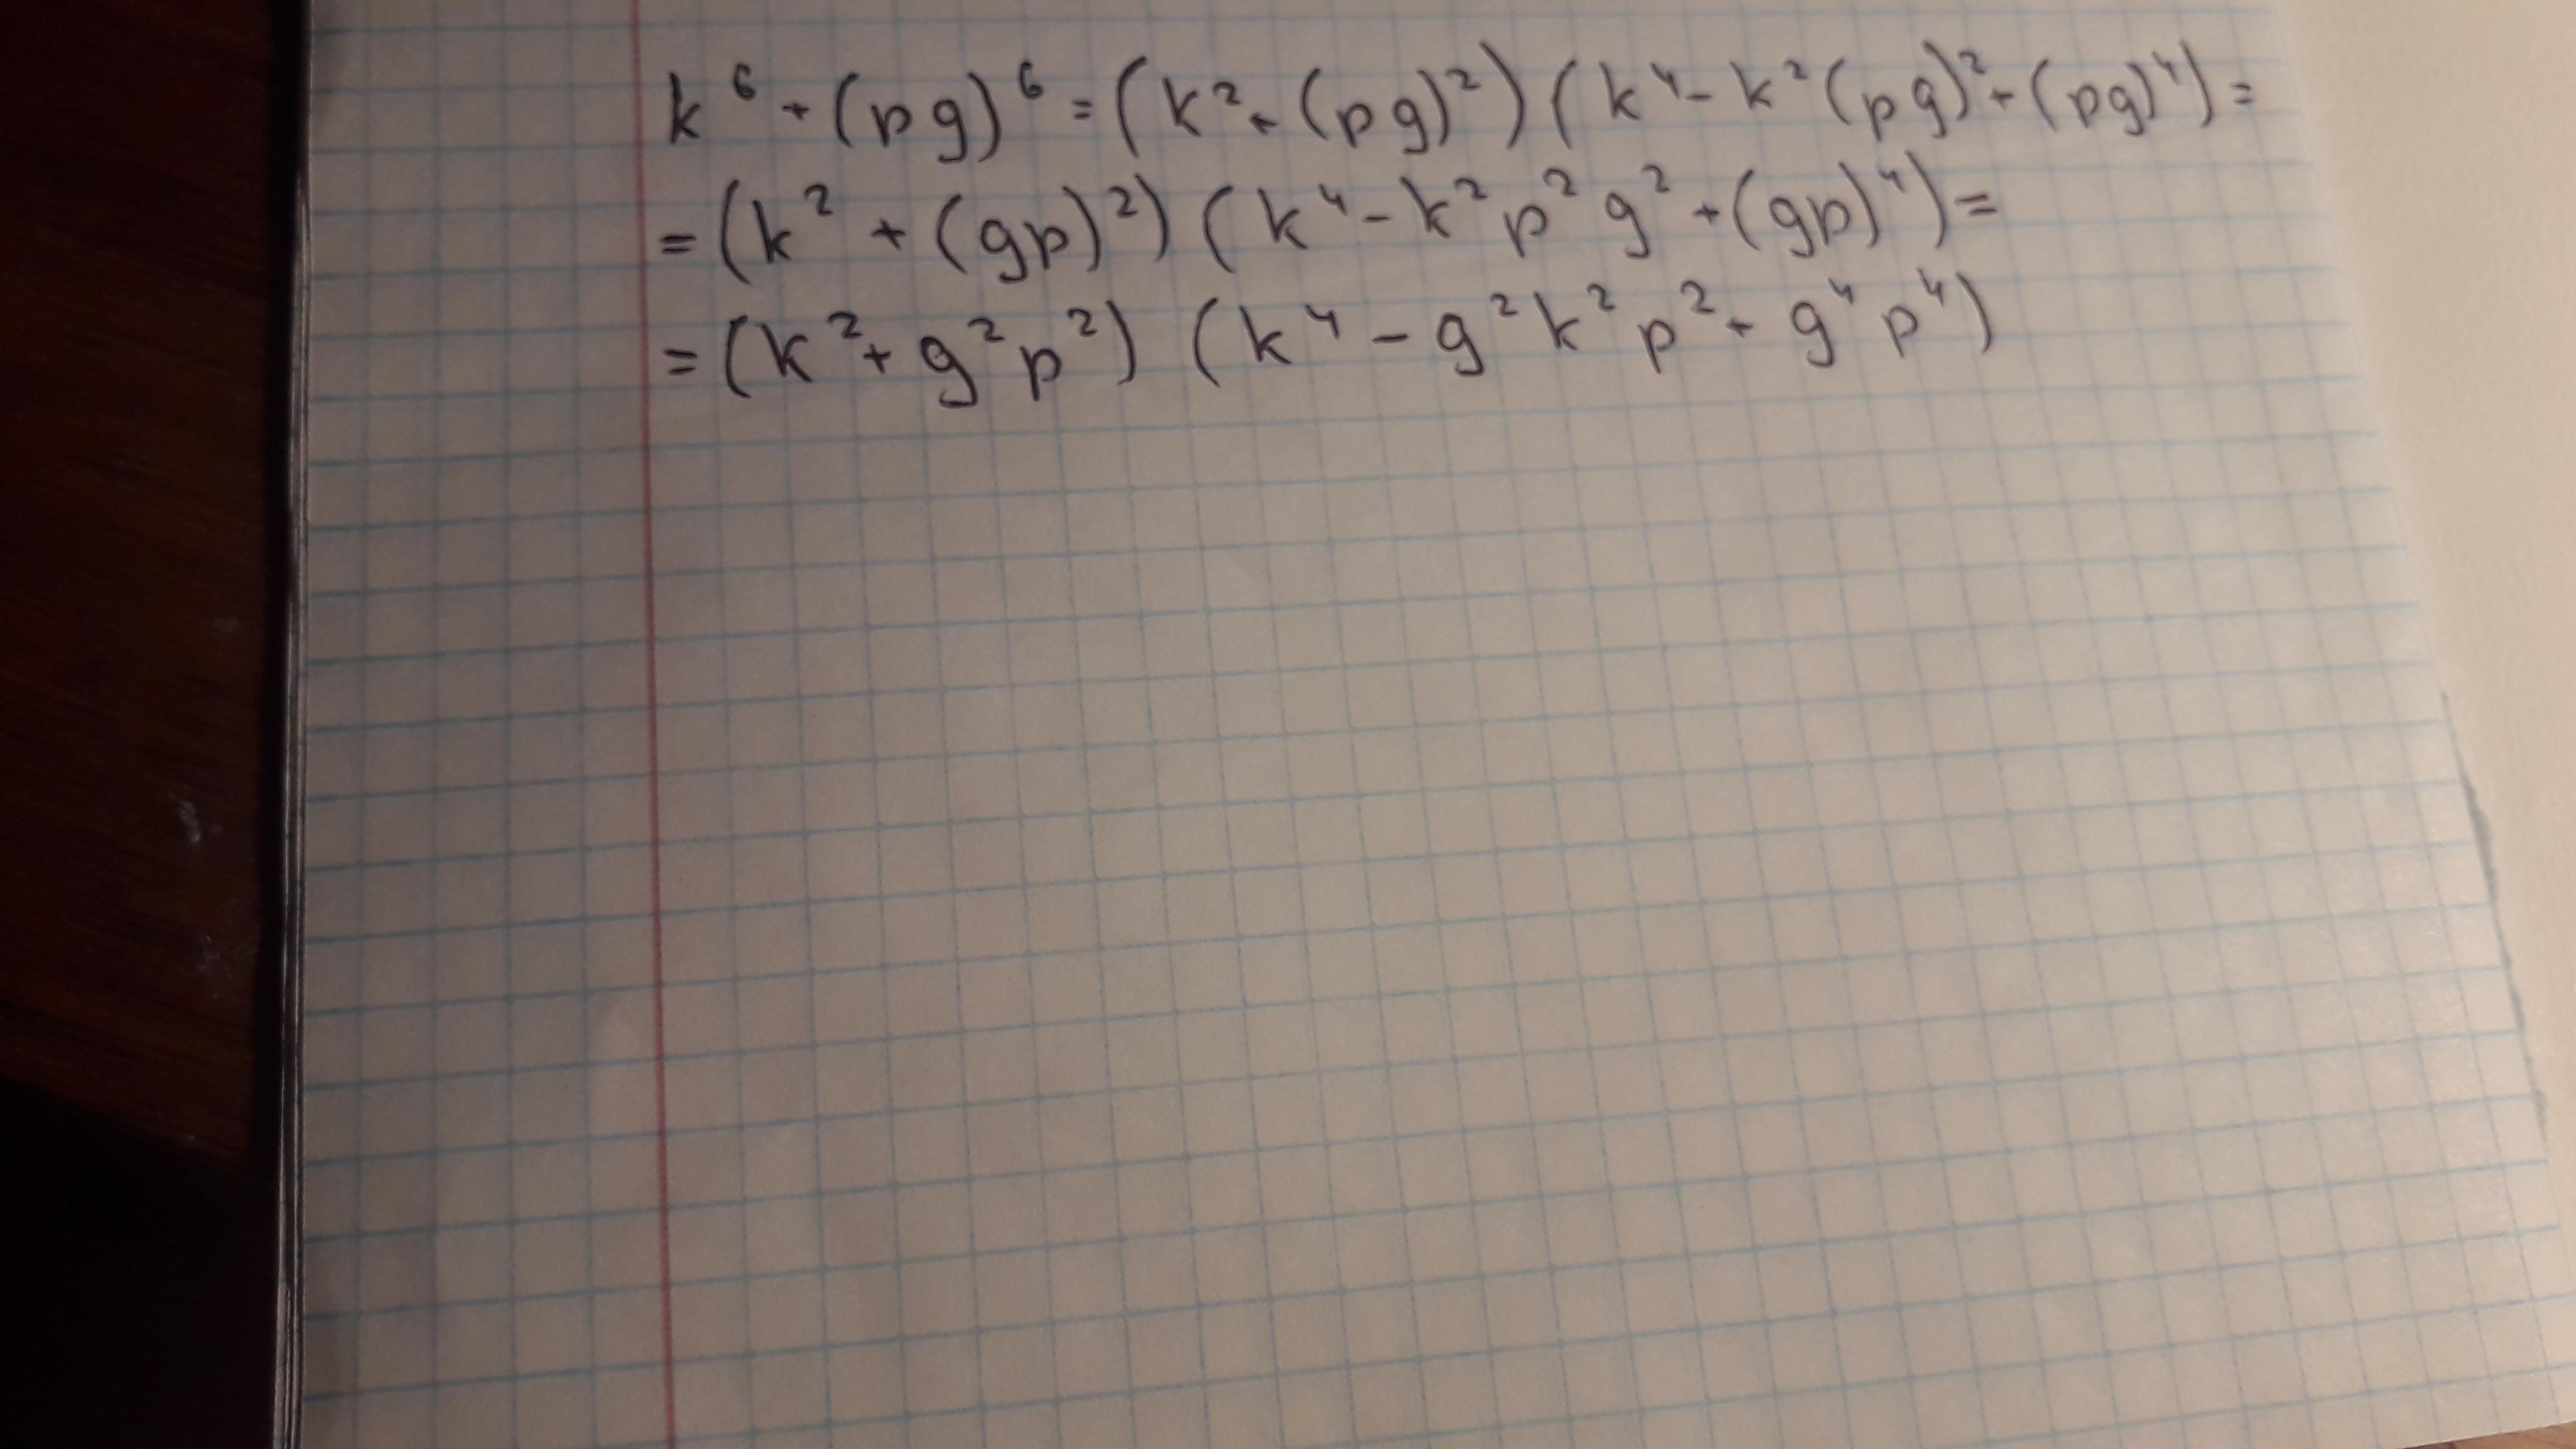 k⁶ + (pg)⁶ = (k² + (pg)²) (k⁴ - k² (pg)² + (pg)⁴) =
= (k² + (gp)²) (k⁴ - k² p² g² + (gp)⁴) =
= (k² + g² p²) (k⁴ - g² k² p² + g⁴ p⁴)